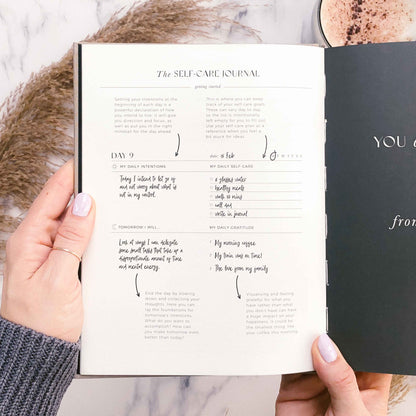 The SELF-CARE JOURNAL
getting started
Setting your intentions at the
beginning of each day is a
powerful declaration of how
you intend to live. It will give
you direction and focus, as
well as put you in the right
mindset for the day ahead.
This is where you can keep
track of your self care goals.
These can vary day to day
so the list is intentionally
left empty for you to fill out.
Use your self care plan as a
reference when you feel a
bit stuck for ideas.
DAY 9
MY DAILY INTENTIONS
Today I intend to let go of
and not worry about what is
not in my control.
MY DAILY SELF-CARE
8 glasses water
healthy meals
walk 20 mins
call dad
write in journal
TOMORROW I WILL...
Look at ways I can delegate
some small tasks that take up a
disproportionate amount of time
and mental energy.
MY DAILY GRATITUDE
My morning coffee
My train was on time!
The love from my family
End the day by slowing
down and collecting your
thoughts. Here you can
lay the foundations for
tomorrow's intentions.
What do you want to
accomplish? How can
you make tomorrow even
better than today?
Visualising and feeling
grateful for what you
have rather than what you
don't have can have
a huge impact of your
happiness. It could be
the smallest thing like
your coffee this morning.
YOU
from